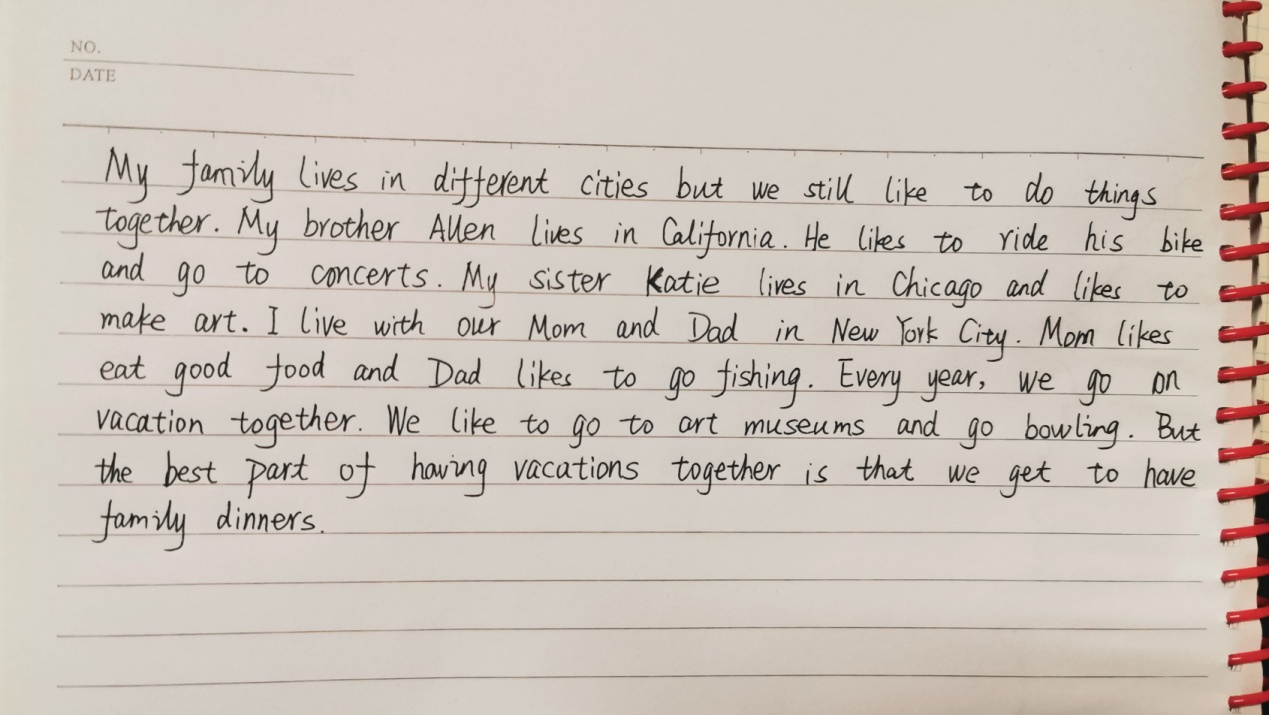 NO.
DATE
My family lives in different cities but we still like to do things
together. My brother Allen lives in California. He likes to ride his bike
and go to concerts. My sister Katie lives in Chicago and likes to
make art. I live with our Mom and Dad in New York City. Mom likes
eat good food and Dad likes to go fishing. Every year, we go on
vacation together. We like to go to art museums and go bowling. But
the best part of having vacations together is that we get to have
family dinners.